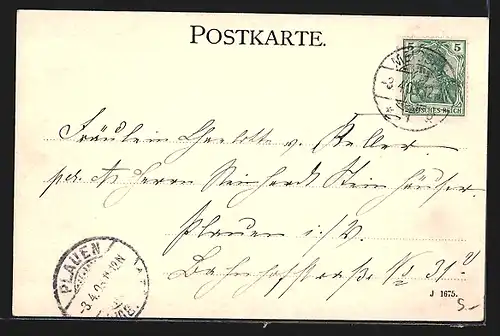 POSTKARTE.
5
DEUTSCHES REICH
Fräulein Charlotte v. Keller.
pr. Ad. Herrn Reinhardt Steinhäuser.
Plauen i/V.
Bahnhofstraße No 31
PLAUEN
-3.4.0
J 1675.
5-